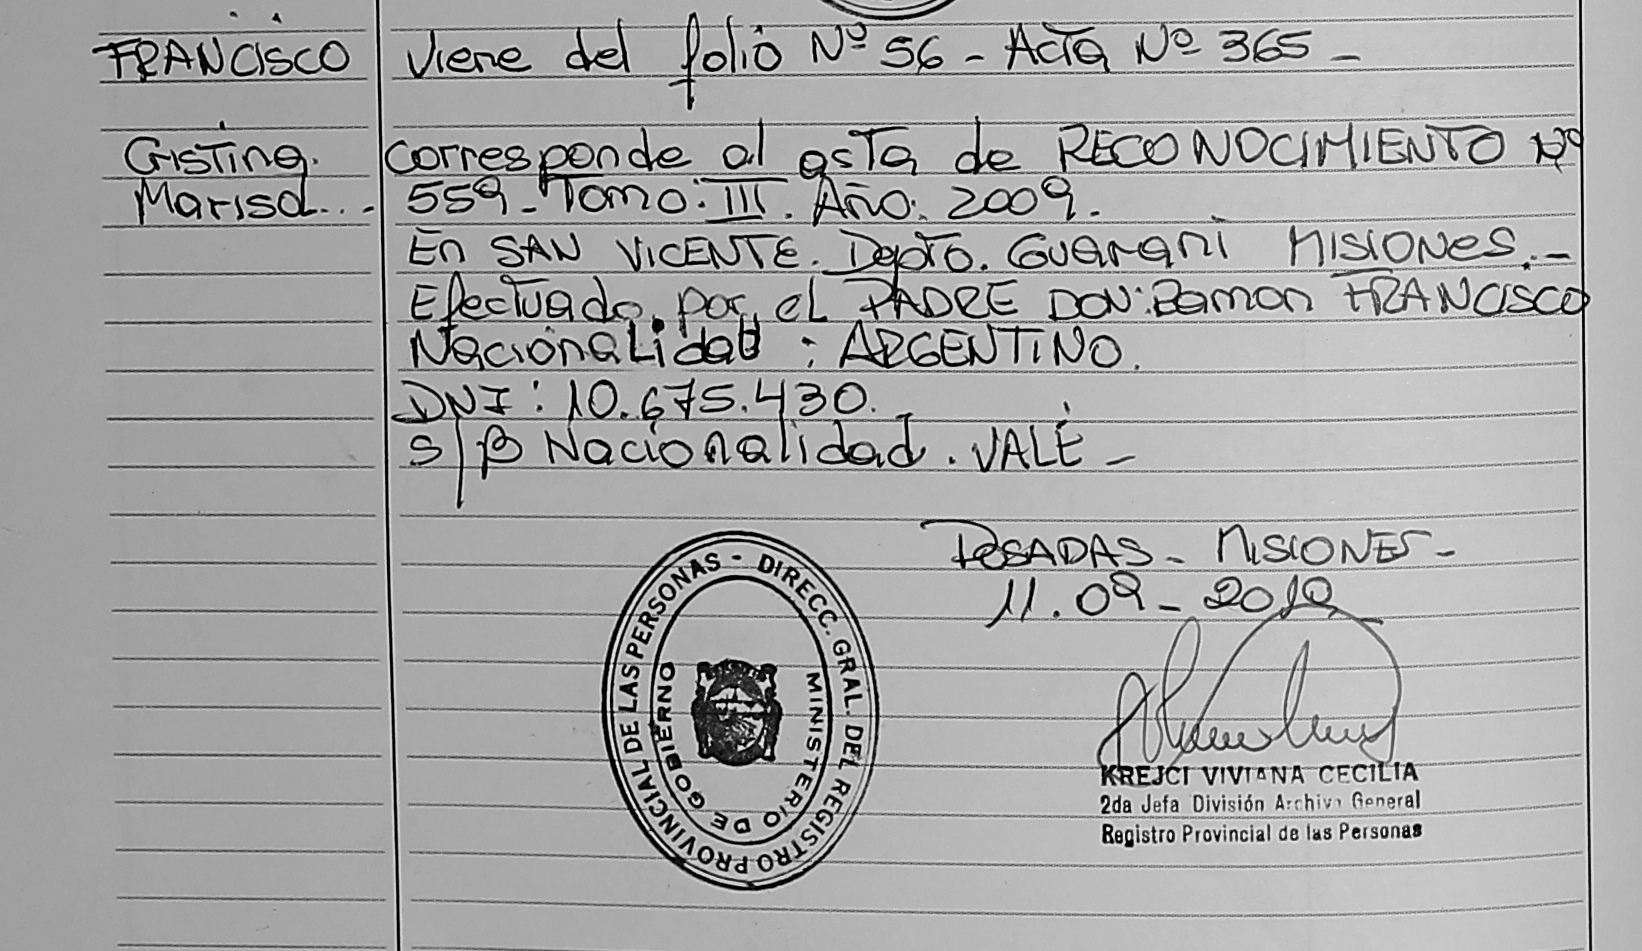 FRANCISCO
Cristina.
Marisol...
Viene del folio Nº 56 - Acta Nº 365 -
corresponde al acta de RECONOCIMIENTO Nº
559 - Tomo: III. Año: 2009.
En SAN VICENTE. Depto. GUARANI MISIONES.-
Efectuado por el PADRE DON: Ramon FRANCISCO
Nacionalidad : ARGENTINO.
DNI: 10.675.430.
S/B Nacionalidad. VALE -
POSADAS - MISIONES -
11.09-2019
DIRECC. GRAL. DEL REGISTRO PROVINCIAL DE LAS PERSONAS -
MINISTERIO DE GOBIERNO
KREJCI VIVIANA CECILIA
2da Jefa División Archivo General
Registro Provincial de las Personas